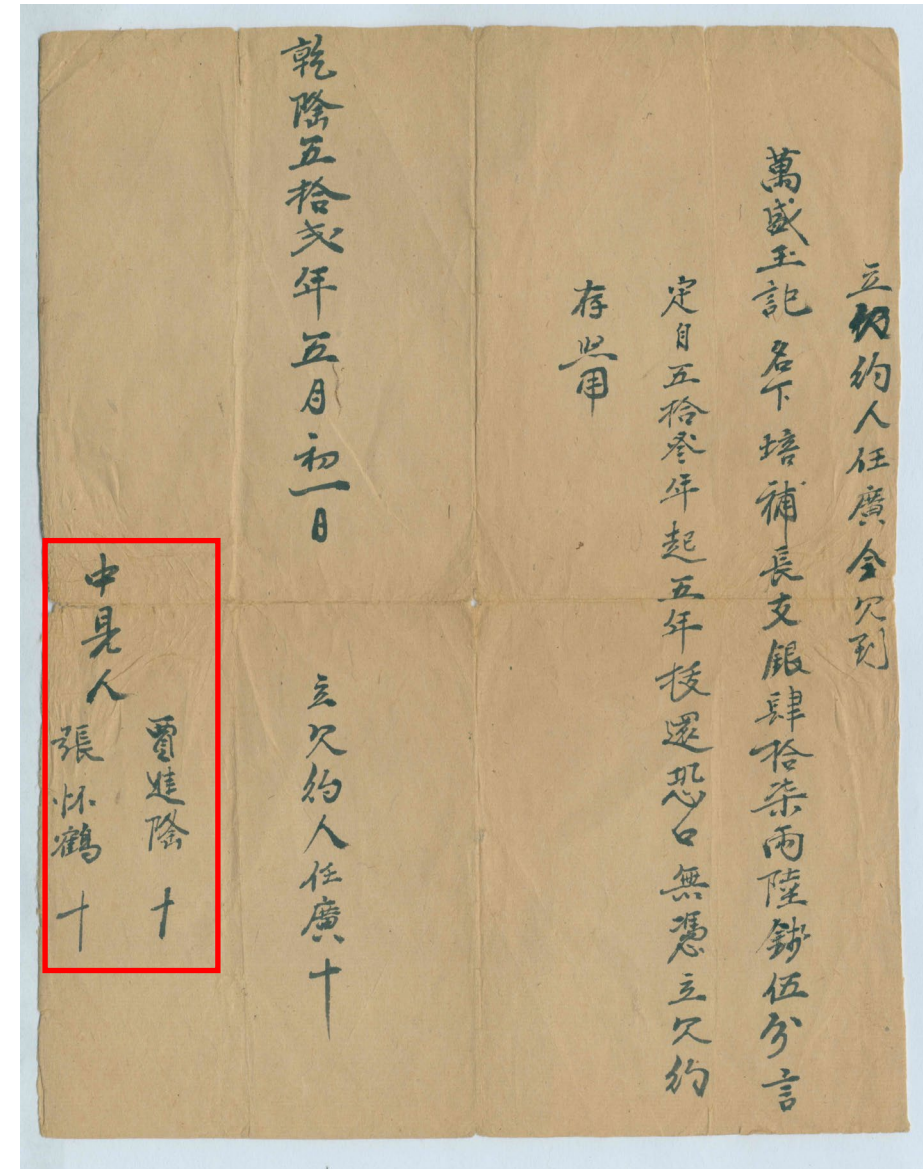 立欠約人任廣全欠到
萬盛玉記名下培補長支銀肆拾柒兩陸錢伍分言
定自五拾叄年起五年拔還恐口無憑立欠約
存照用
乾隆五拾弍年五月初一日
立欠約人任廣十
中見人
賈進隆十
張怀鶴十